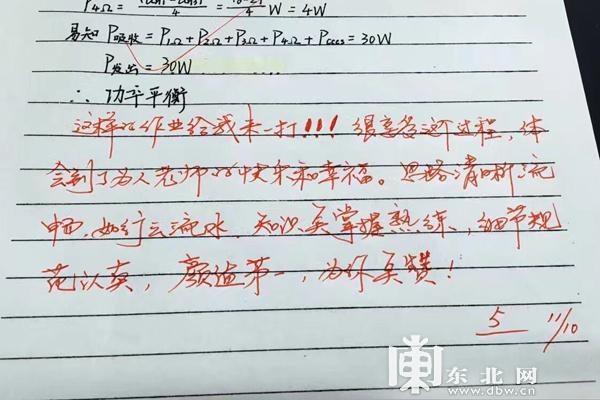 P4Ω = /4 = /4 W = 4W
易知 P吸收 = P1Ω + P2Ω + P3Ω + P4Ω + Pcccs = 30W
P发出 = 30W
∴ 功率平衡
这样的作业给我来一打!!! 很享受这个过程,体
会到了为人老师的快乐和幸福。思路清晰流
畅、如行云流水、知识点掌握熟练、细节规
范认真,颜值第一,为你点赞!
5 11/10
东北网
www.dbw.cn